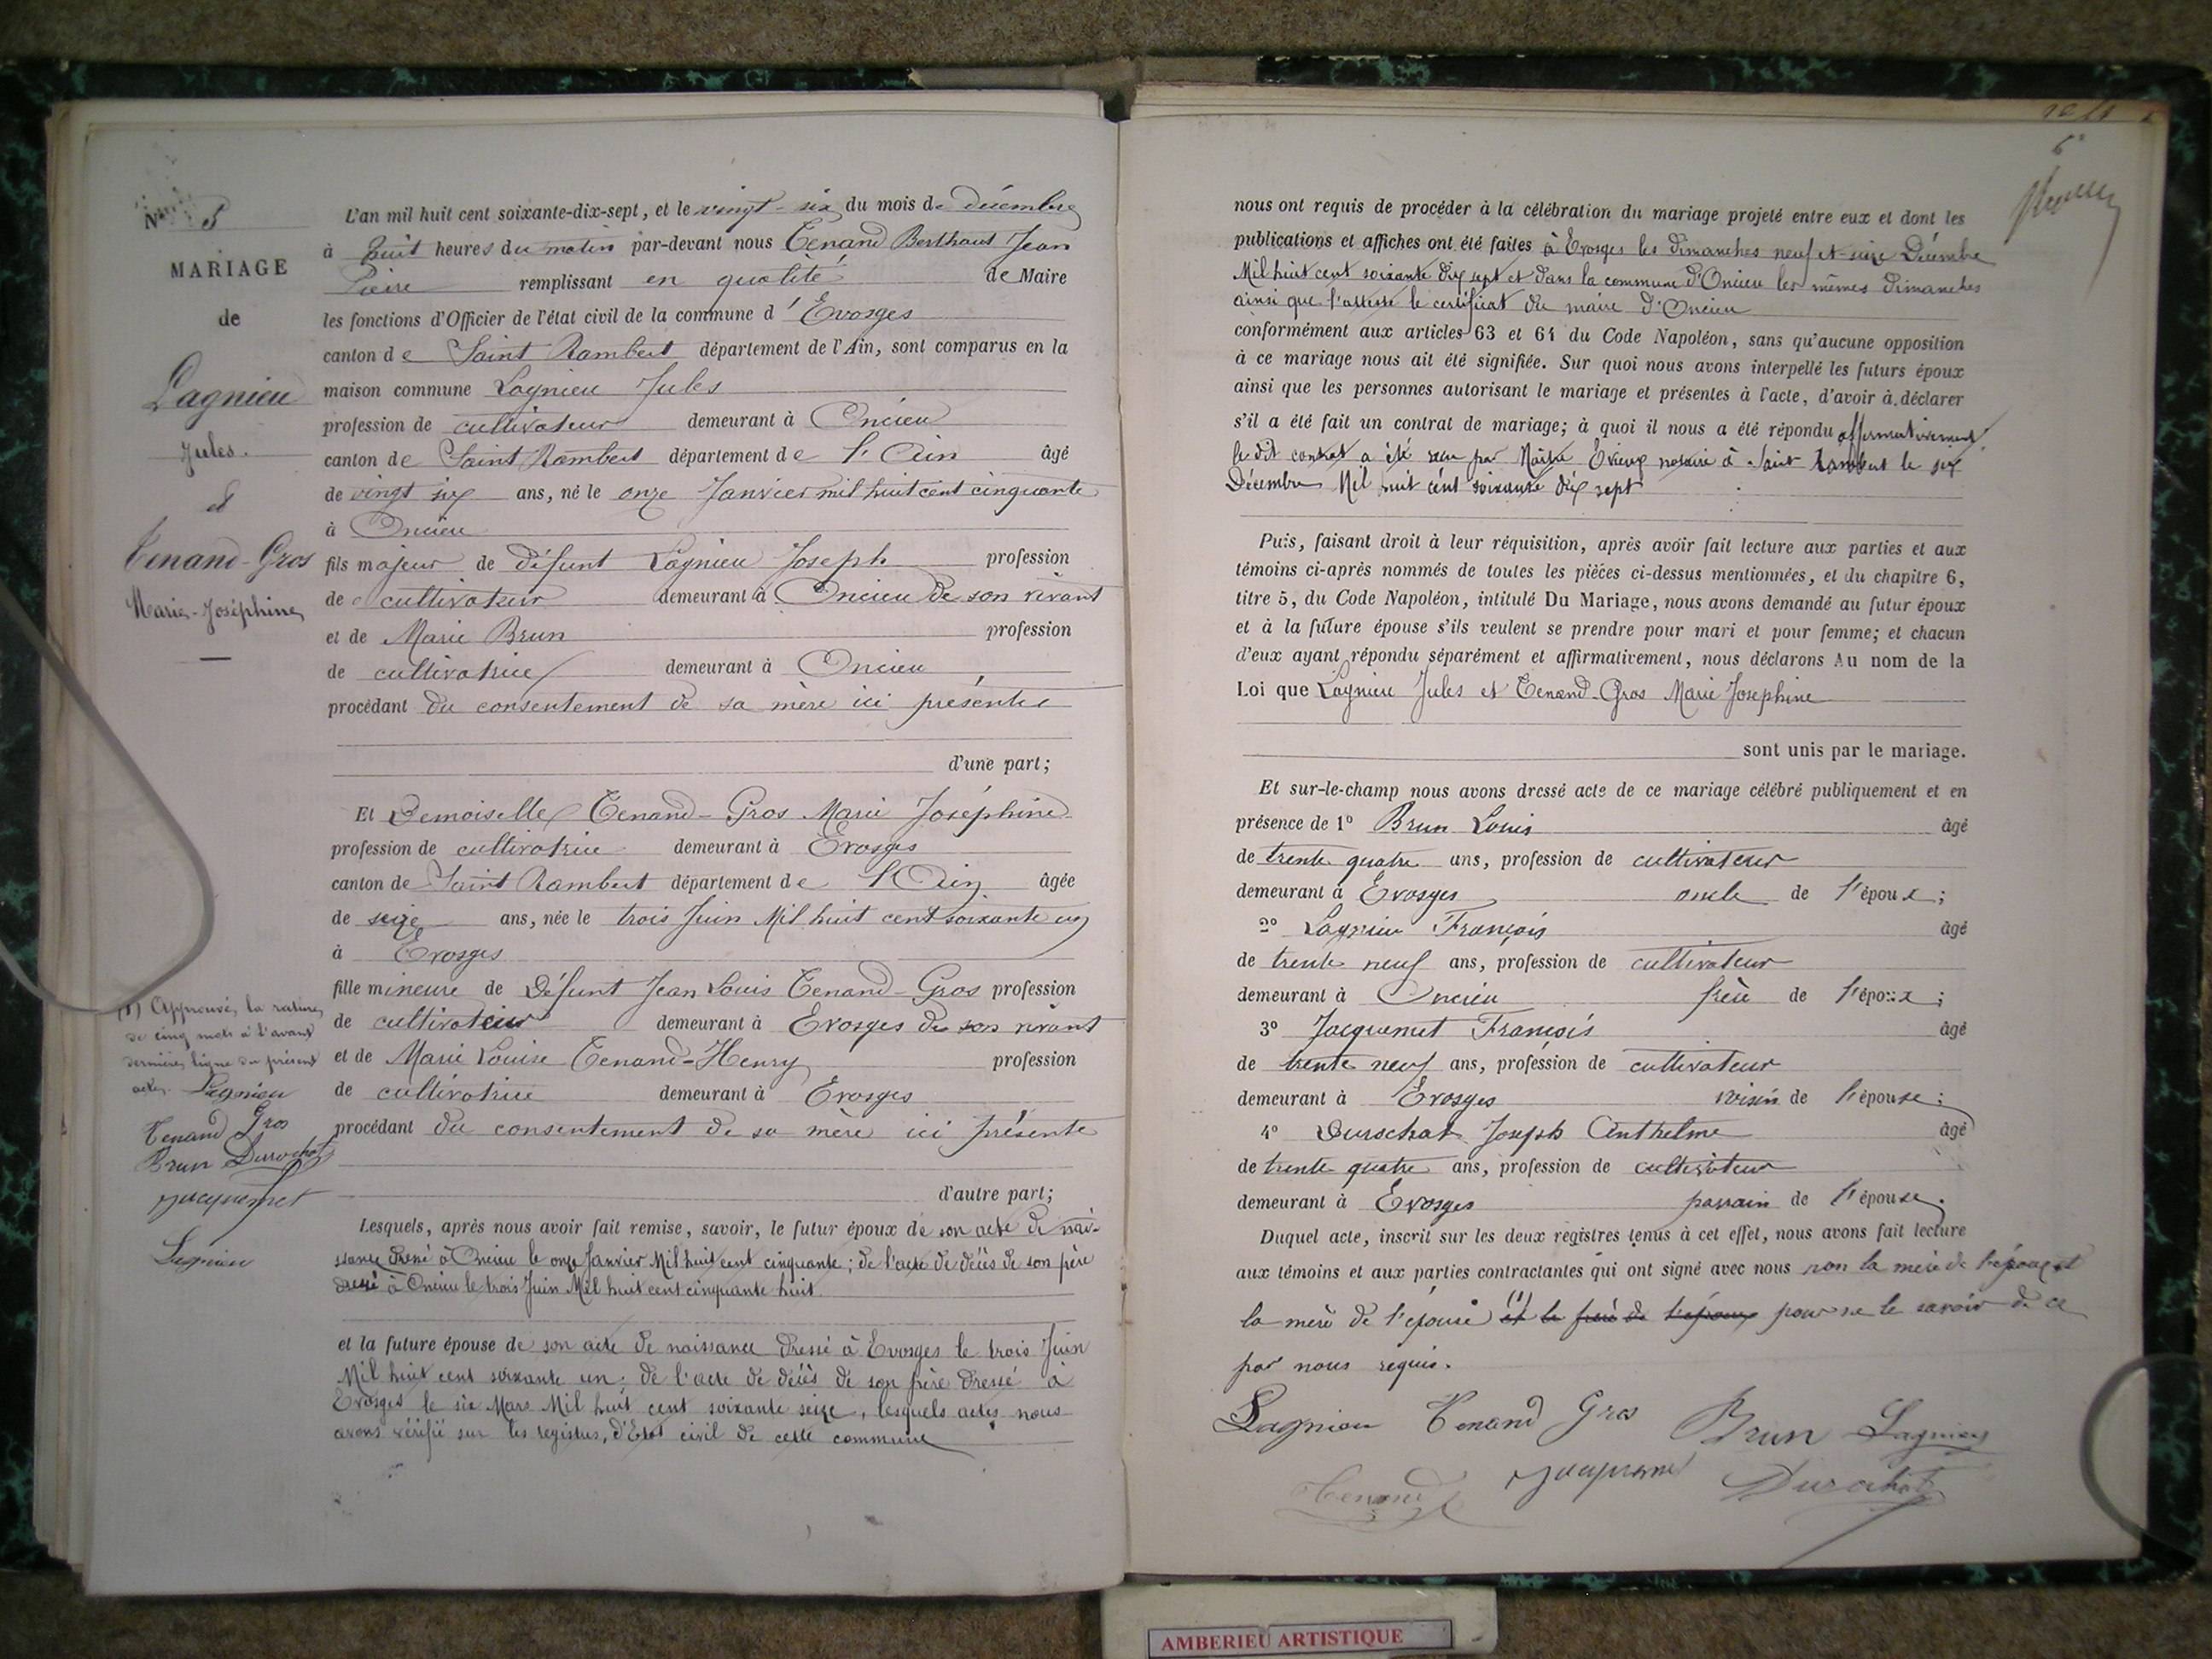 N° 5
MARIAGE
de
Lagnieu
Jules.
et
Tenand-Gros
Marie-Joséphine
L'an mil huit cent soixante-dix-sept, et le vingt-six du mois de décembre
à huit heures du matin par-devant nous Tenand Berthaud Jean
Pierre remplissant en qualité de Maire
les fonctions d'Officier de l'état civil de la commune d'Evosges
canton de Saint Rambert département de l'Ain, sont comparus en la
maison commune Lagnieu Jules
profession de cultivateur demeurant à Oncieu
canton de Saint Rambert département de l'Ain âgé
de vingt six ans, né le onze Janvier mil huit cent cinquante
à Oncieu
fils majeur de défunt Lagnieu Joseph profession
de cultivateur demeurant à Oncieu de son vivant
et de Marie Brun profession
de cultivatrice demeurant à Oncieu
procédant du consentement de sa mère ici présente
d'une part;
Et Demoiselle Tenand-Gros Marie Joséphine
profession de cultivatrice demeurant à Evosges
canton de Saint Rambert département de l'Ain âgée
de seize ans, née le trois Juin Mil huit cent soixante un
à Evosges
fille mineure de Défunt Jean Louis Tenand-Gros profession
de cultivateur demeurant à Evosges de son vivant
et de Marie Louise Tenand-Henry profession
de cultivatrice demeurant à Evosges
procédant du consentement de sa mère ici présente
d'autre part;
Lesquels, après nous avoir fait remise, savoir, le futur époux de son acte de nais-
sance dressé à Oncieu le onze Janvier Mil huit cent cinquante; de l'acte de décès de son père
dressé à Oncieu le trois Juin Mil huit cent cinquante huit
et la future épouse de son acte de naissance dressé à Evosges le trois Juin
Mil huit cent soixante un; de l'acte de décès de son père dressé à
Evosges le six Mars Mil huit cent soixante seize, lesquels actes nous
avons vérifié sur les registres, d'Etat civil de cette commune
(1) Approuvé, la rature
de cinq mots à l'avant
dernière ligne du présent
acte.
Lagnieu
Tenand Gros
Brun Durochat
Jacquemet
Lagnieu
6e
nous ont requis de procéder à la célébration du mariage projeté entre eux et dont les
publications et affiches ont été faites à Evosges les dimanches neuf et seize Décembre
Mil huit cent soixante dix sept et dans la commune d'Oncieu les mêmes dimanches
ainsi que l'atteste le certificat du maire d'Oncieu
conformément aux articles 63 et 64 du Code Napoléon, sans qu'aucune opposition
à ce mariage nous ait été signifiée. Sur quoi nous avons interpellé les futurs époux
ainsi que les personnes autorisant le mariage et présentes à l'acte, d'avoir à déclarer
s'il a été fait un contrat de mariage; à quoi il nous a été répondu affirmativement
le dit contrat a été reçu par Maître notaire à Saint Rambert le six
Décembre Mil huit cent soixante dix sept
Puis, faisant droit à leur réquisition, après avoir fait lecture aux parties et aux
témoins ci-après nommés de toutes les pièces ci-dessus mentionnées, et du chapitre 6,
titre 5, du Code Napoléon, intitulé Du Mariage, nous avons demandé au futur époux
et à la future épouse s'ils veulent se prendre pour mari et pour femme; et chacun
d'eux ayant répondu séparément et affirmativement, nous déclarons Au nom de la
Loi que Lagnieu Jules et Tenand-Gros Marie Josephine
sont unis par le mariage.
Et sur-le-champ nous avons dressé acte de ce mariage célébré publiquement et en
présence de 1° Brun Louis âgé
de trente quatre ans, profession de cultivateur
demeurant à Evosges oncle de l'époux;
2° Lagnieu François âgé
de trente neuf ans, profession de cultivateur
demeurant à Oncieu frère de l'époux;
3° Jacquemet François âgé
de trente neuf ans, profession de cultivateur
demeurant à Evosges voisin de l'épouse;
4° Durochat Joseph Anthelme âgé
de trente quatre ans, profession de cultivateur
demeurant à Evosges parrain de l'épouse.
Duquel acte, inscrit sur les deux registres tenus à cet effet, nous avons fait lecture
aux témoins et aux parties contractantes qui ont signé avec nous non la mère de l'époux et
la mère de l'épouse (1) et le frère de l'époux pour ne le savoir de ce
par nous requis.
Lagnieu Tenand Gros Brun Lagnieu
Tenand Jacquemet Durochat
AMBERIEU ARTISTIQUE